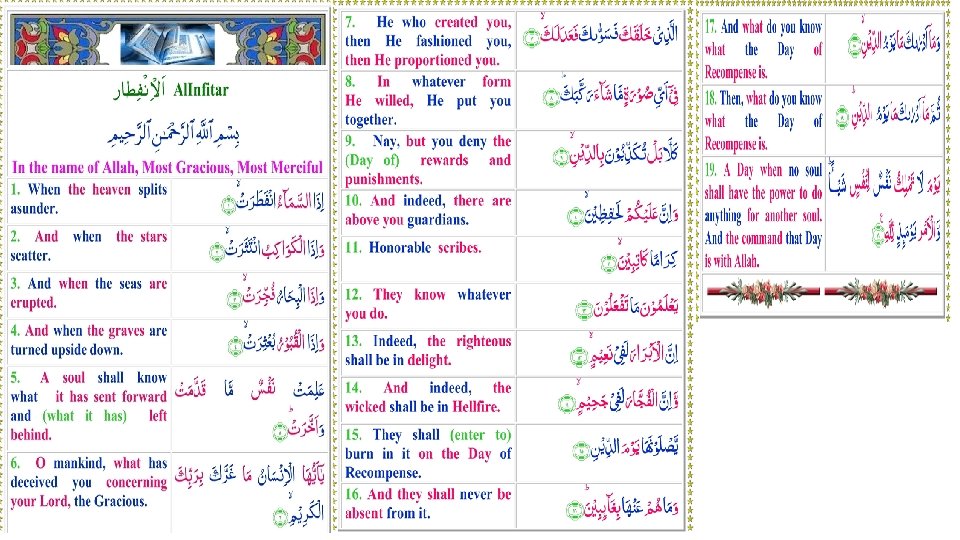 اَلْاِنْفِطَار AlInfitar
بِسْمِ اللّٰهِ الرَّحْمٰنِ الرَّحِيْمِ
In the name of Allah, Most Gracious, Most Merciful
1. When the heaven splits
asunder.
اِذَا السَّمَآءُ انْفَطَرَتْۙ ۝١
2. And when the stars
scatter.
وَاِذَا الْكَوَاكِبُ انْتَثَرَتْۙ ۝٢
3. And when the seas are
erupted.
وَاِذَا الْبِحَارُ فُجِّرَتْۙ ۝٣
4. And when the graves are
turned upside down.
وَاِذَا الْقُبُوْرُ بُعْثِرَتْۙ ۝٤
5. A soul shall know
what it has sent forward
and (what it has) left
behind.
عَلِمَتْ نَفْسٌ مَّا قَدَّمَتْ
وَاَخَّرَتْؕ ۝٥
6. O mankind, what has
deceived you concerning
your Lord, the Gracious.
يٰٓاَيُّهَا الْاِنْسَانُ مَا غَرَّكَ بِرَبِّكَ
الْكَرِيْمِۙ ۝٦
7. He who created you,
then He fashioned you,
then He proportioned you.
الَّذِىْ خَلَقَكَ فَسَوّٰٮكَ فَعَدَلَكَۙ ۝٧
8. In whatever form
He willed, He put you
together.
فِىْۤ اَىِّ صُوْرَةٍ مَّا شَآءَ رَكَّبَكَؕ ۝٨
9. Nay, but you deny the
(Day of) rewards and
punishments.
كَلَّا بَلْ تُكَذِّبُوْنَ بِالدِّيْنِۙ ۝٩
10. And indeed, there are
above you guardians.
وَاِنَّ عَلَيْكُمْ لَحٰفِظِيْنَۙ ۝١٠
11. Honorable scribes.
كِرَامًا كَاتِبِيْنَۙ ۝١١
12. They know whatever
you do.
يَعْلَمُوْنَ مَا تَفْعَلُوْنَ ۝١٢
13. Indeed, the righteous
shall be in delight.
اِنَّ الْاَبْرَارَ لَفِىْ نَعِيْمٍۙ ۝١٣
14. And indeed, the
wicked shall be in Hellfire.
وَّاِنَّ الْفُجَّارَ لَفِىْ جَحِيْمٍۙ ۝١٤
15. They shall (enter to)
burn in it on the Day of
Recompense.
يَّصْلَوْنَهَا يَوْمَ الدِّيْنِ ۝١٥
16. And they shall never be
absent from it.
وَمَا هُمْ عَنْهَا بِغَآٮِٕبِيْنَؕ ۝١٦
17. And what do you know
what the Day of
Recompense is.
وَمَاۤ اَدْرٰٮكَ مَا يَوْمُ الدِّيْنِۙ ۝١٧
18. Then, what do you know
what the Day of
Recompense is.
ثُمَّ مَاۤ اَدْرٰٮكَ مَا يَوْمُ الدِّيْنِؕ ۝١٨
19. A Day when no soul
shall have the power to do
anything for another soul.
And the command that Day
is with Allah.
يَوْمَ لَا تَمْلِكُ نَفْسٌ لِّنَفْسٍ شَيْـًٔاؕ
وَالْاَمْرُ يَوْمَٮِٕذٍ لِّلّٰهِ ۝١٩